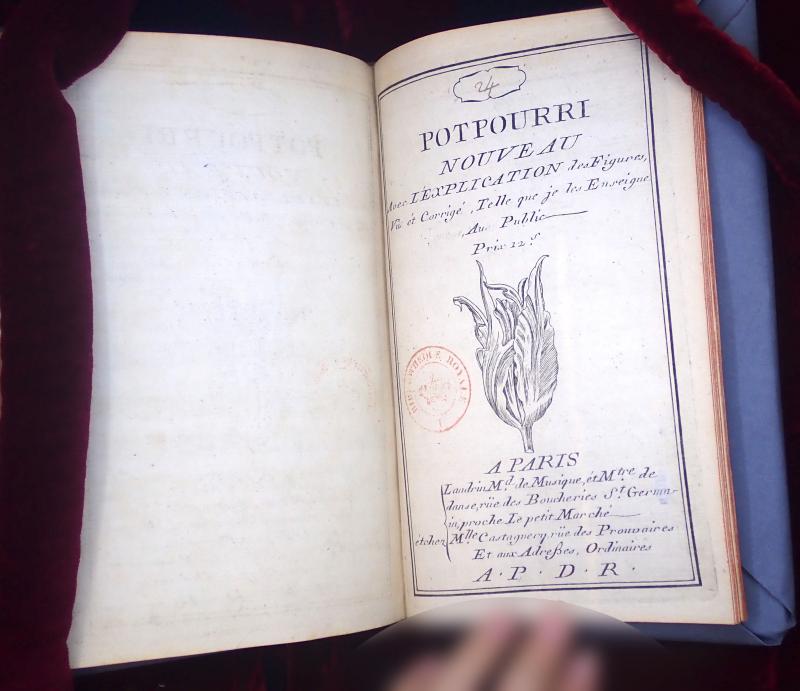 24
POTPOURRI
NOUVEAU
Avec L'EXPLICATION des Figures,
Vû ét Corrigé, Telle que je les Enseigne
Au Public
Prix 12 s
BIBLIOTHEQUE ROYALE
A PARIS
Landrin Md. de Musique, ét Mtre de
danse, rüe des Boucheries St. Germa-
in, proche Le petit Marché
ét chez Mlle Castagnery, rüe des Prouvaires
Et aux Adreßes, Ordinaires
A · P · D · R ·